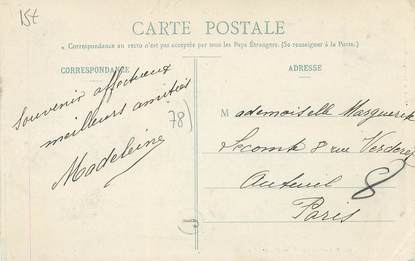 15t
CARTE POSTALE
Correspondance au recto n'est pas acceptée par tous les Pays Étrangers. (Se renseigner à la Poste.)
CORRESPONDANCE
Souvenir affectueux
meilleurs amitiés
Madeleine
78)
ADRESSE
Mademoiselle Marguerite
Lecomte 8 rue Verderet
Auteuil 8
Paris